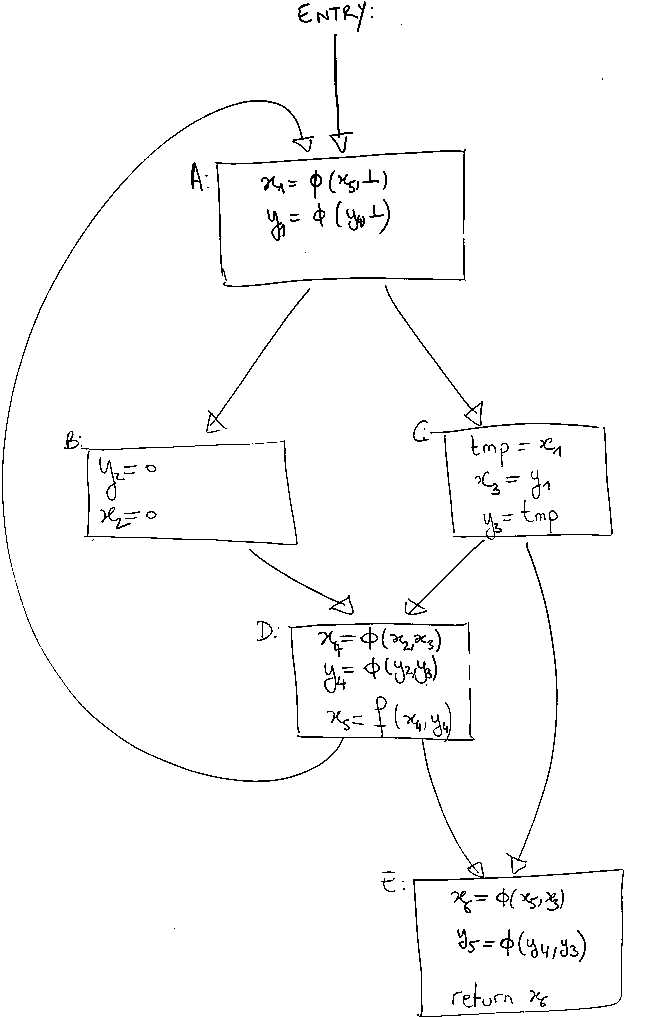 ENTRY:
A:
x₁ = φ(x₅, ⊥)
y₁ = φ(y₄, ⊥)
B:
y₂ = 0
x₂ = 0
C:
tmp = x₁
x₃ = y₁
y₃ = tmp
D:
x₄ = φ(x₂, x₃)
y₄ = φ(y₂, y₃)
x₅ = f(x₄, y₄)
E:
x₆ = φ(x₅, x₃)
y₅ = φ(y₄, y₃)
return x₆